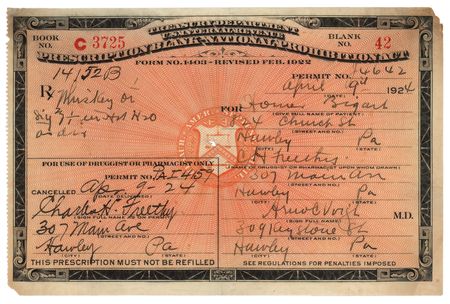 TREASURY DEPARTMENT
U.S. INTERNAL REVENUE
BOOK NO. C 3725
BLANK NO. 42
PRESCRIPTION BLANK-NATIONAL PROHIBITION ACT
FORM NO. 1403-REVISED FEB. 1922
14/52B
PERMIT NO. 4642
April 9 1924
(DATE)
Rx Whiskey
FOR Homer
(GIVE FULL NAME OF PATIENT)
Church St
(STREET AND NO.)
Hawley Pa
(CITY) (STATE)
in Hot H2O
as dir
(NAME OF DRUGGIST OR PHARMACIST UPON WHOM DRAWN)
FOR USE OF DRUGGIST OR PHARMACIST ONLY
307 Main
(STREET AND NO.)
PERMIT NO. PA I 457
Hawley Pa
(CITY) (STATE)
CANCELLED Apr 9-24
(DATE OF DELIVERY)
M.D.
(SIGN FULL NAME)
307 Main Ave
(STREET AND NO.)
309 Keystone St
(STREET AND NO.)
Hawley Pa
(CITY) (STATE)
Hawley Pa
(CITY) (STATE)
THIS PRESCRIPTION MUST NOT BE REFILLED
SEE REGULATIONS FOR PENALTIES IMPOSED